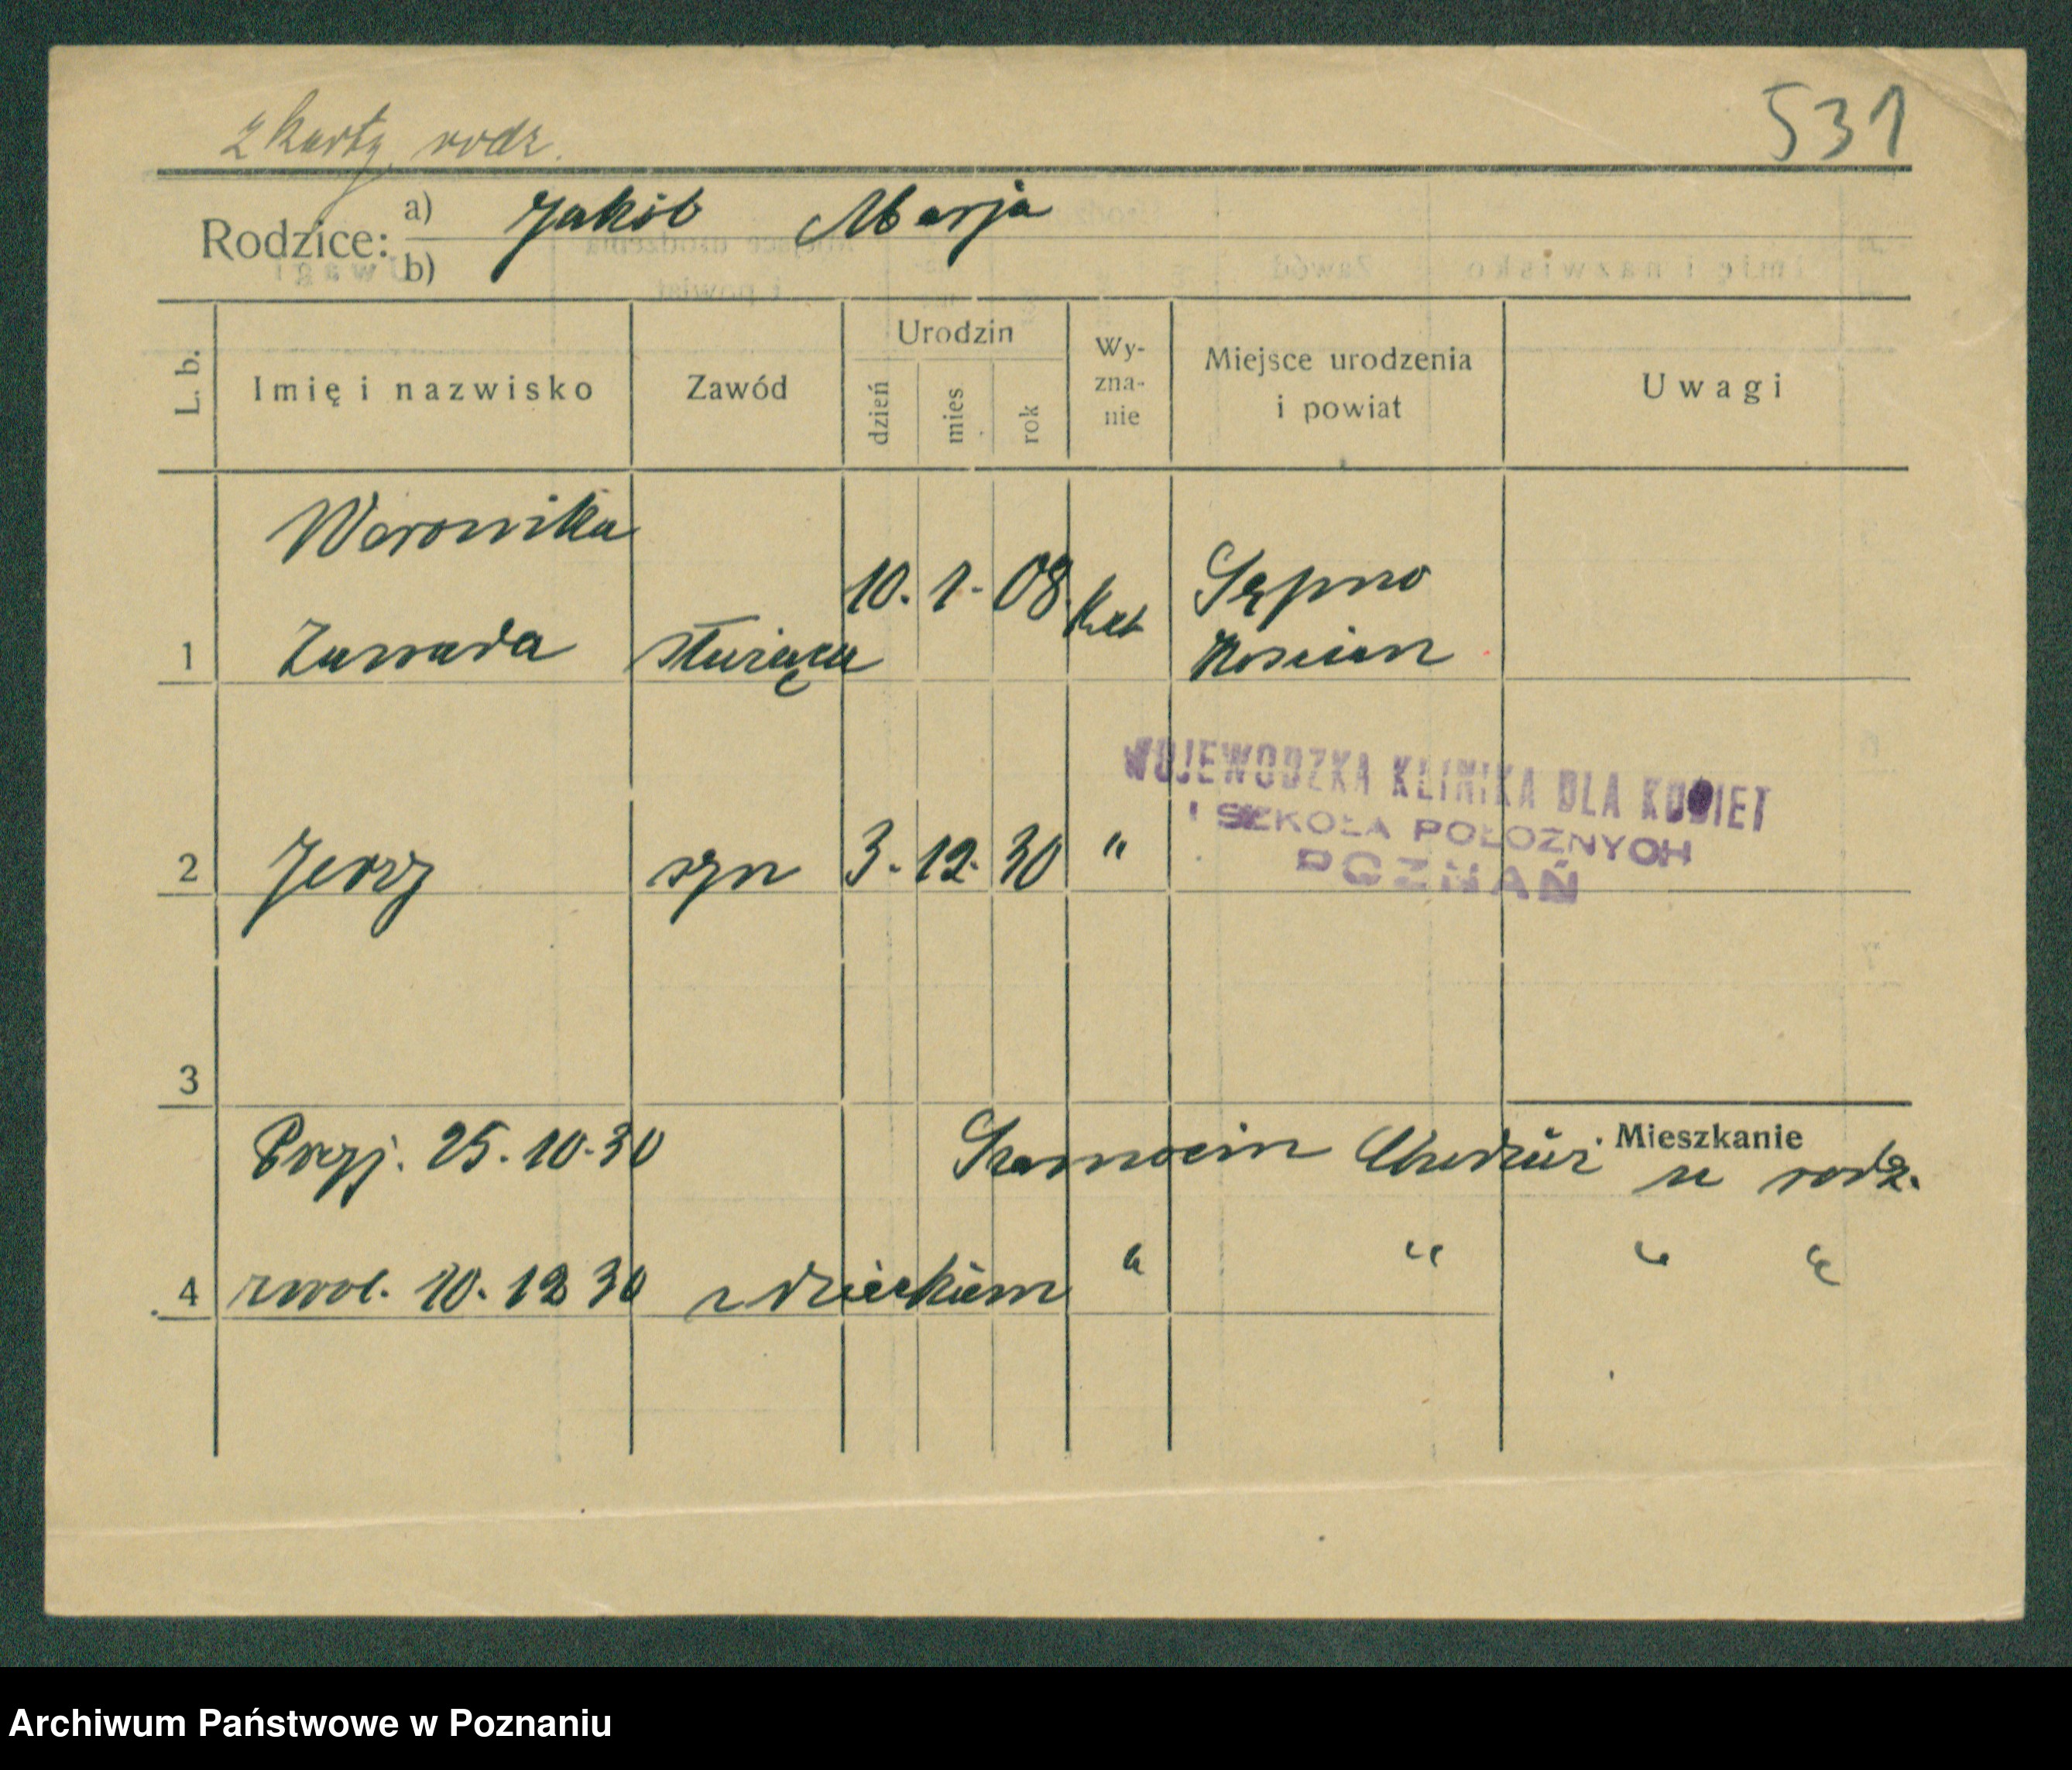 z karty rodz.
531
Rodzice: a) Jakób Marja
b)
L. b.
Imię i nazwisko
Zawód
Urodzin
dzień
mies
rok
Wy-
zna-
nie
Miejsce urodzenia
i powiat
Uwagi
Weronika
10. 1. 08. Kat Sępno
1 Zawada służąca Kościan
WOJEWODZKA KLINIKA DLA KOBIET
I SZKOŁA POŁOŻNYCH
POZNAŃ
2 Jerzy syn 3. 12. 30 "
3
Mieszkanie
Przyj. 25. 10. 30 Szamocin Chodzież u rodz.
4 zwol. 10. 12 30 z dzieckiem " " " "
Archiwum Państwowe w Poznaniu